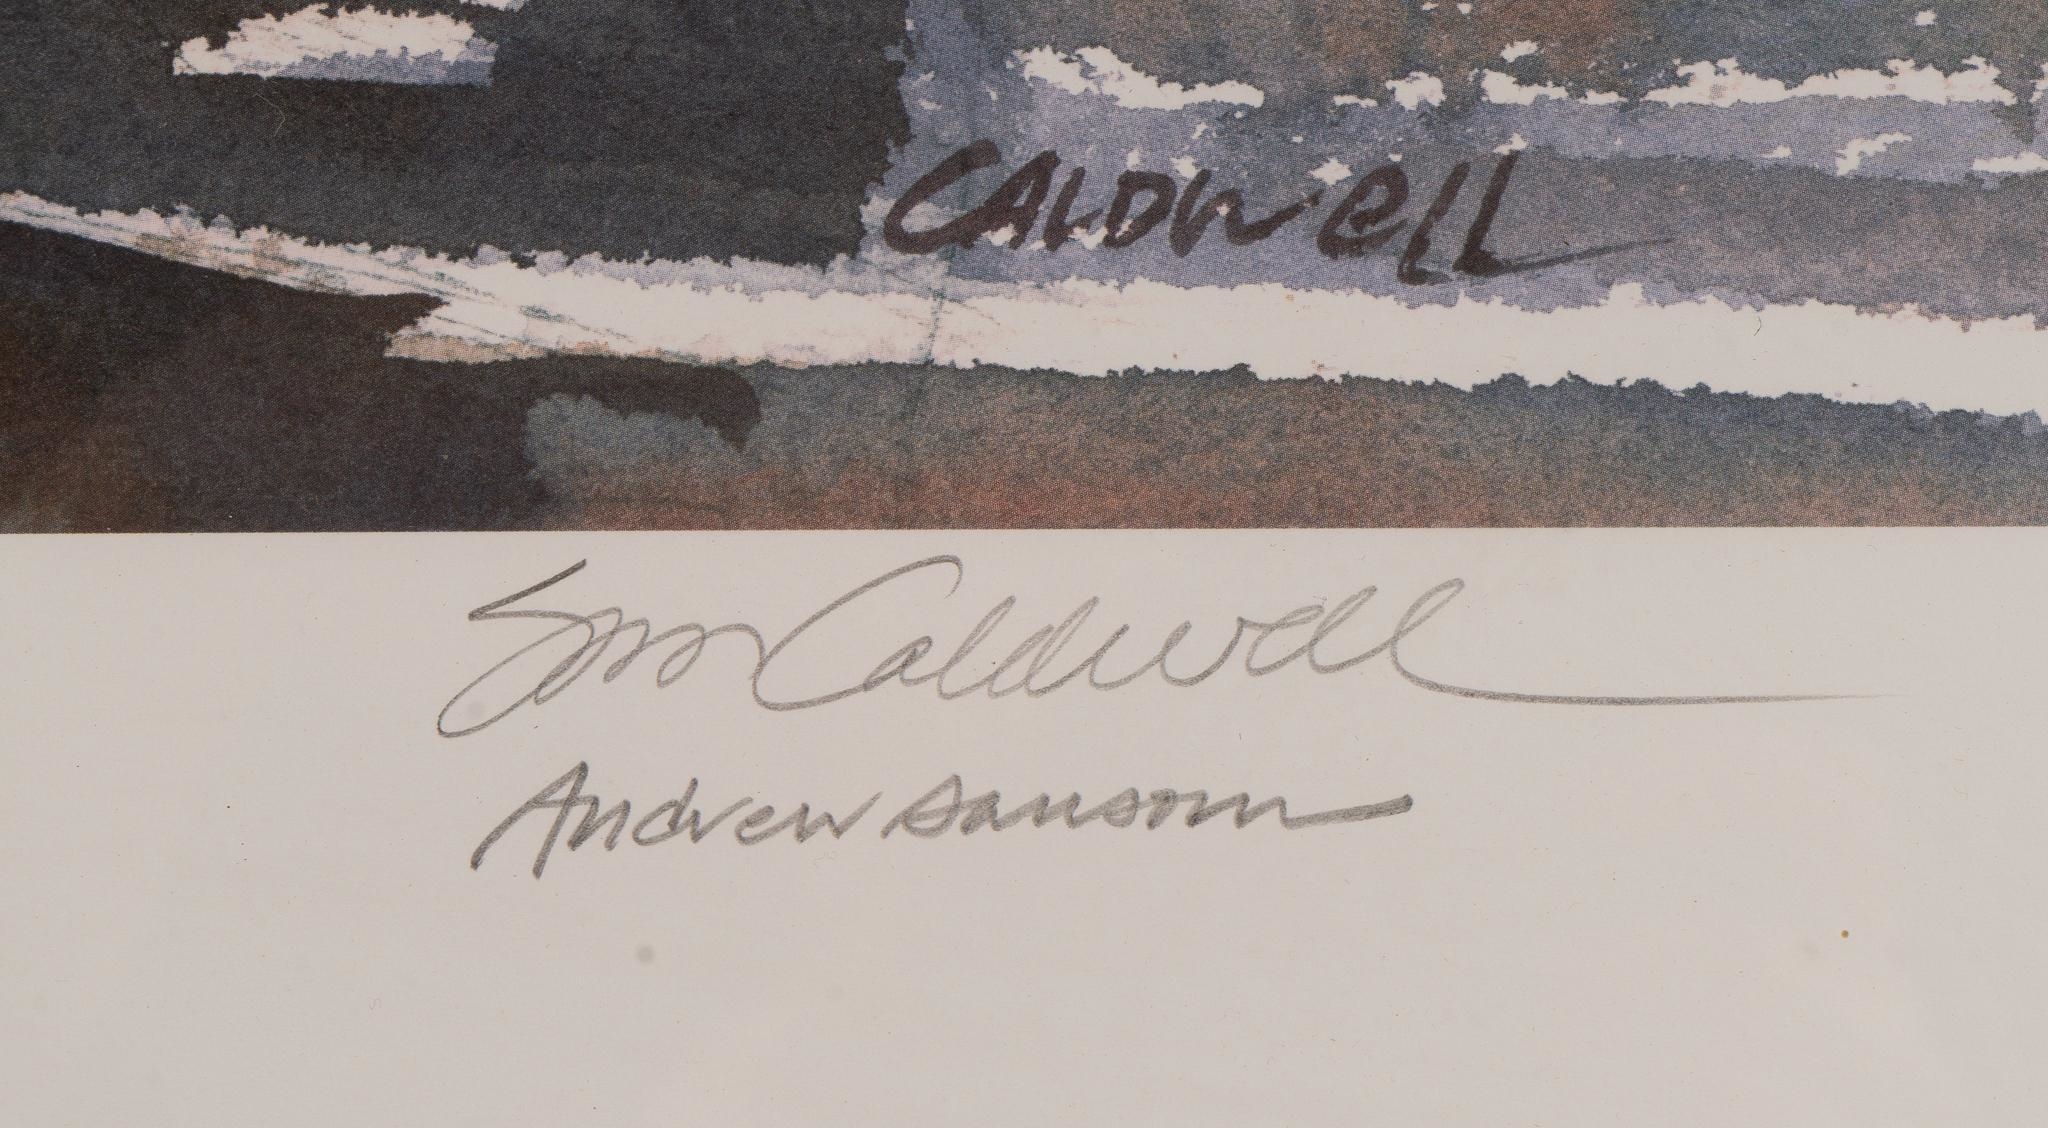 CALDWELL
Sam Caldwell
Andrew Sansom